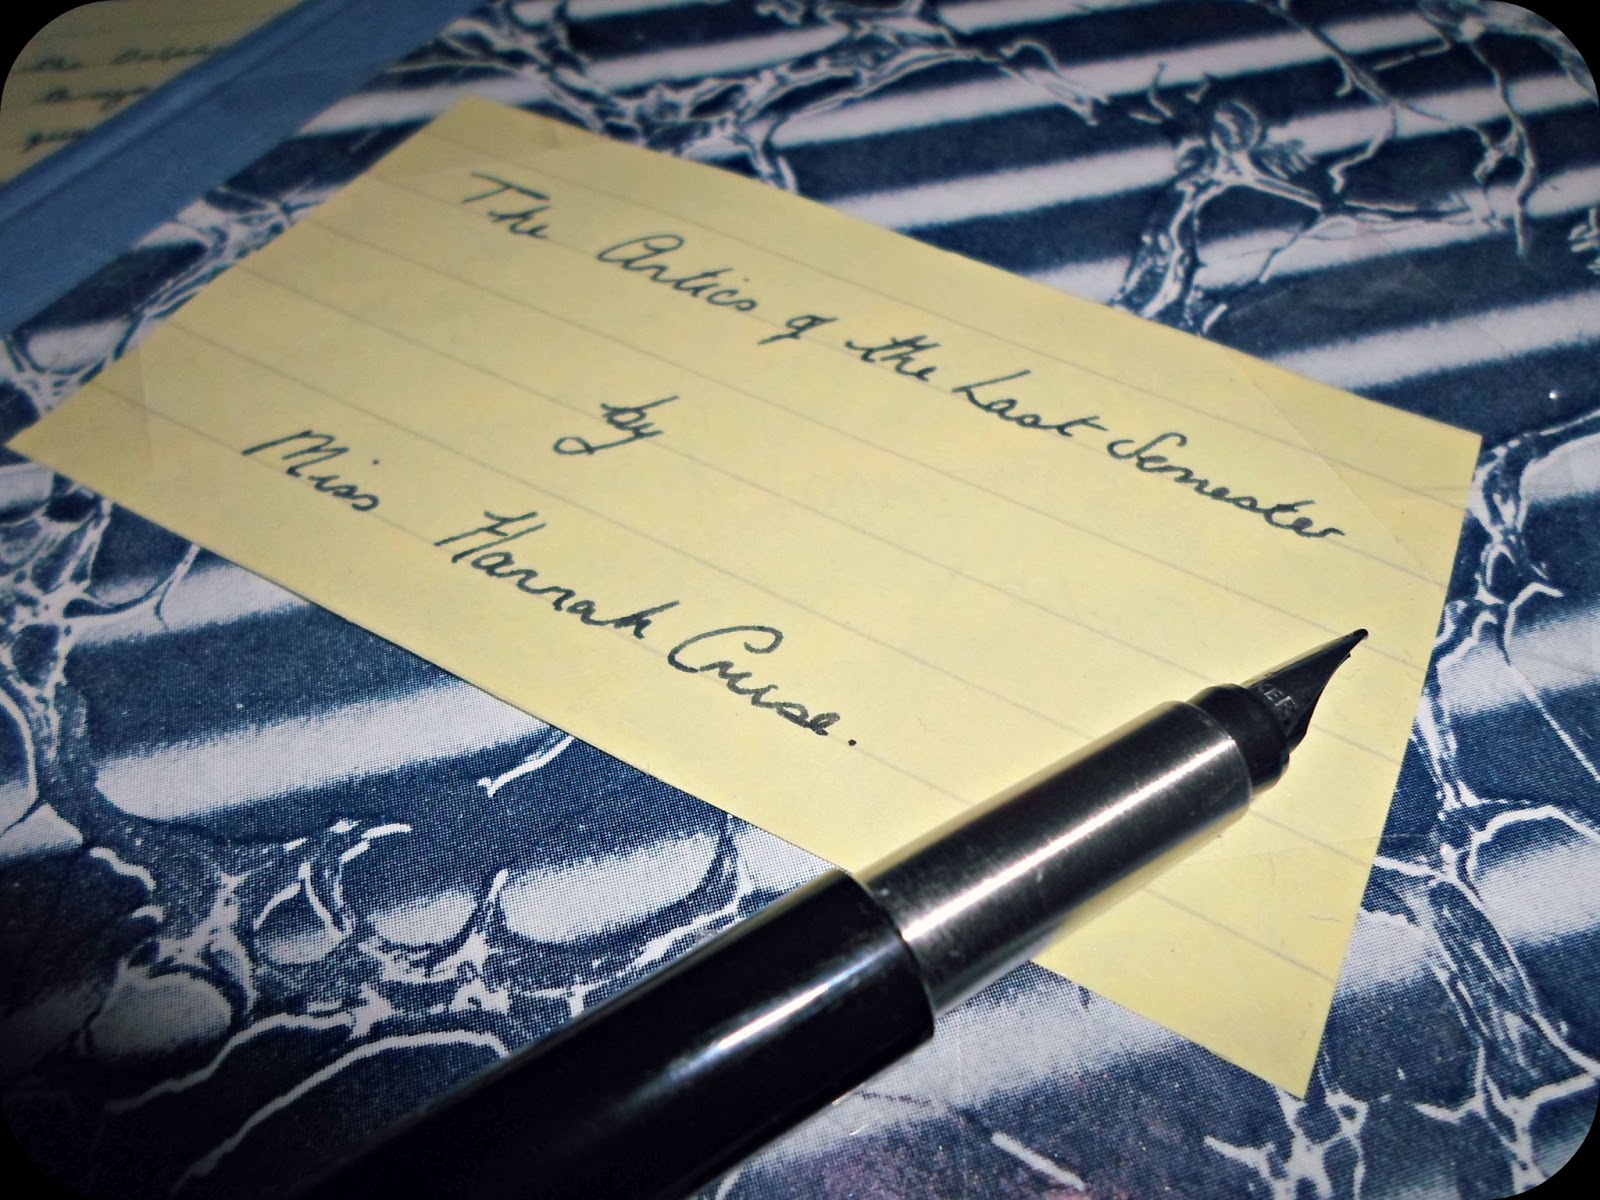 The Artics of the Last Semester
by
Miss Hannah Cruse.